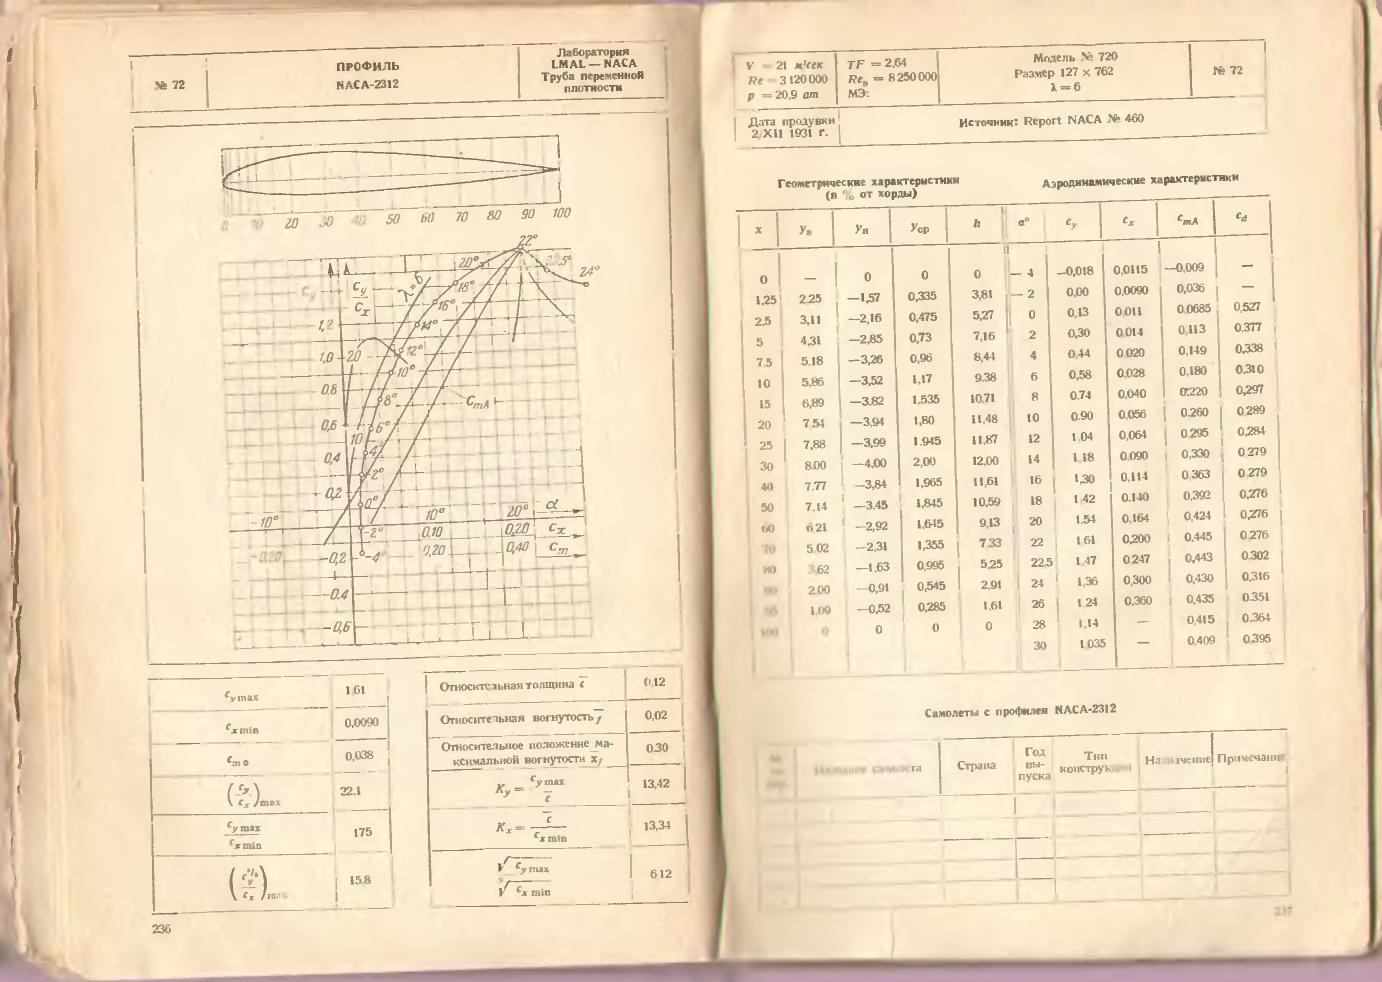 № 72
ПРОФИЛЬ
NACA-2312
Лаборатория
LMAL — NACA
Труба переменной
плотности
0 20 30 40 50 60 70 80 90 100
22°
20° 22.5° 24°
λ=6
18°
16°
14°
12°
10°
8°
6°
4°
2°
0°
-2°
-4°
Cy
Cy/Cx
CmA
1,2
1,0 20
0.8
0,6
10
0,4
0,2
-10° 10° 20° α
0,10 0,20 Cx
-0.20 0,20 0,40 Cm
-0,2
-0.4
-0,6
c y max 1.61
c x min 0,0090
c m 0 0,038
(c y / c x) max 22.1
c y max / c x min 175
15.8
Относительная толщина c̄ 0,12
Относительная вогнутость f̄ 0,02
Относительное положение ма-
ксимальной вогнутости x̄f 0.30
Kу = c y max / c̄ 13,42
Kx = c̄ / c x min 13,34
√c y max / √c x min 6 12
236
V 21 м/сек TF = 2,64 Модель № 720
Re 3 120 000 Reэ = 8 250 000 Размер 127 × 762 № 72
p = 20,9 ат МЭ: λ = 6
Дата продувки
2/XII 1931 г.
Источник: Report NACA № 460
Геометрические характеристики
(в % от хорды)
Аэродинамические характеристики
x yв yп yср h α° cy cx cmA cd
0 — 0 0 0 — 4 —0,018 0,0115 —0,009 —
1,25 2,25 —1,57 0,335 3,81 — 2 0,00 0,0090 0,036 —
2.5 3,11 —2,16 0,475 5,27 0 0,13 0 011 0 0685 0,527
5 4,31 —2,85 0,73 7,16 2 0,30 0 014 0,113 0.377
7.5 5.18 —3,26 0,96 8,44 4 0,44 0 020 0,149 0,338
10 5,86 —3,52 1,17 9.38 6 0,58 0,028 0,180 0.310
15 6,89 —3.82 1.535 10.71 8 0.74 0,040 0,220 0,297
20 7 54 —3,94 1,80 11,48 10 0.90 0,056 0.260 0 289
25 7,88 —3,99 1.945 11,87 12 1 04 0,064 0.295 0,284
30 8.00 —4.00 2,00 12,00 14 1 18 0.090 0,330 0 279
40 7.77 —3,84 1,965 11,61 16 1,30 0,114 0 363 0 279
50 7.14 —3.45 1,845 10,59 18 1 42 0.140 0,392 0,276
60 6 21 —2,92 1,645 9,13 20 1.54 0,164 0,424 0,276
70 5.02 —2,31 1,355 7.33 22 1 61 0,200 0,445 0 276
80 3,62 —1,63 0,995 5,25 22.5 1.47 0 247 0,443 0.302
90 2.00 —0,91 0,545 2.91 24 1,36 0,300 0,430 0,316
95 1,09 —0,52 0,285 1.61 26 1 24 0,360 0,435 0.351
100 0 0 0 0 28 1,14 — 0,415 0.364
30 1 035 — 0.409 0,395
Самолеты с профилем NACA-2312
Название самолета Страна Год вы-пуска Тип конструкции Назначение Примечание
237